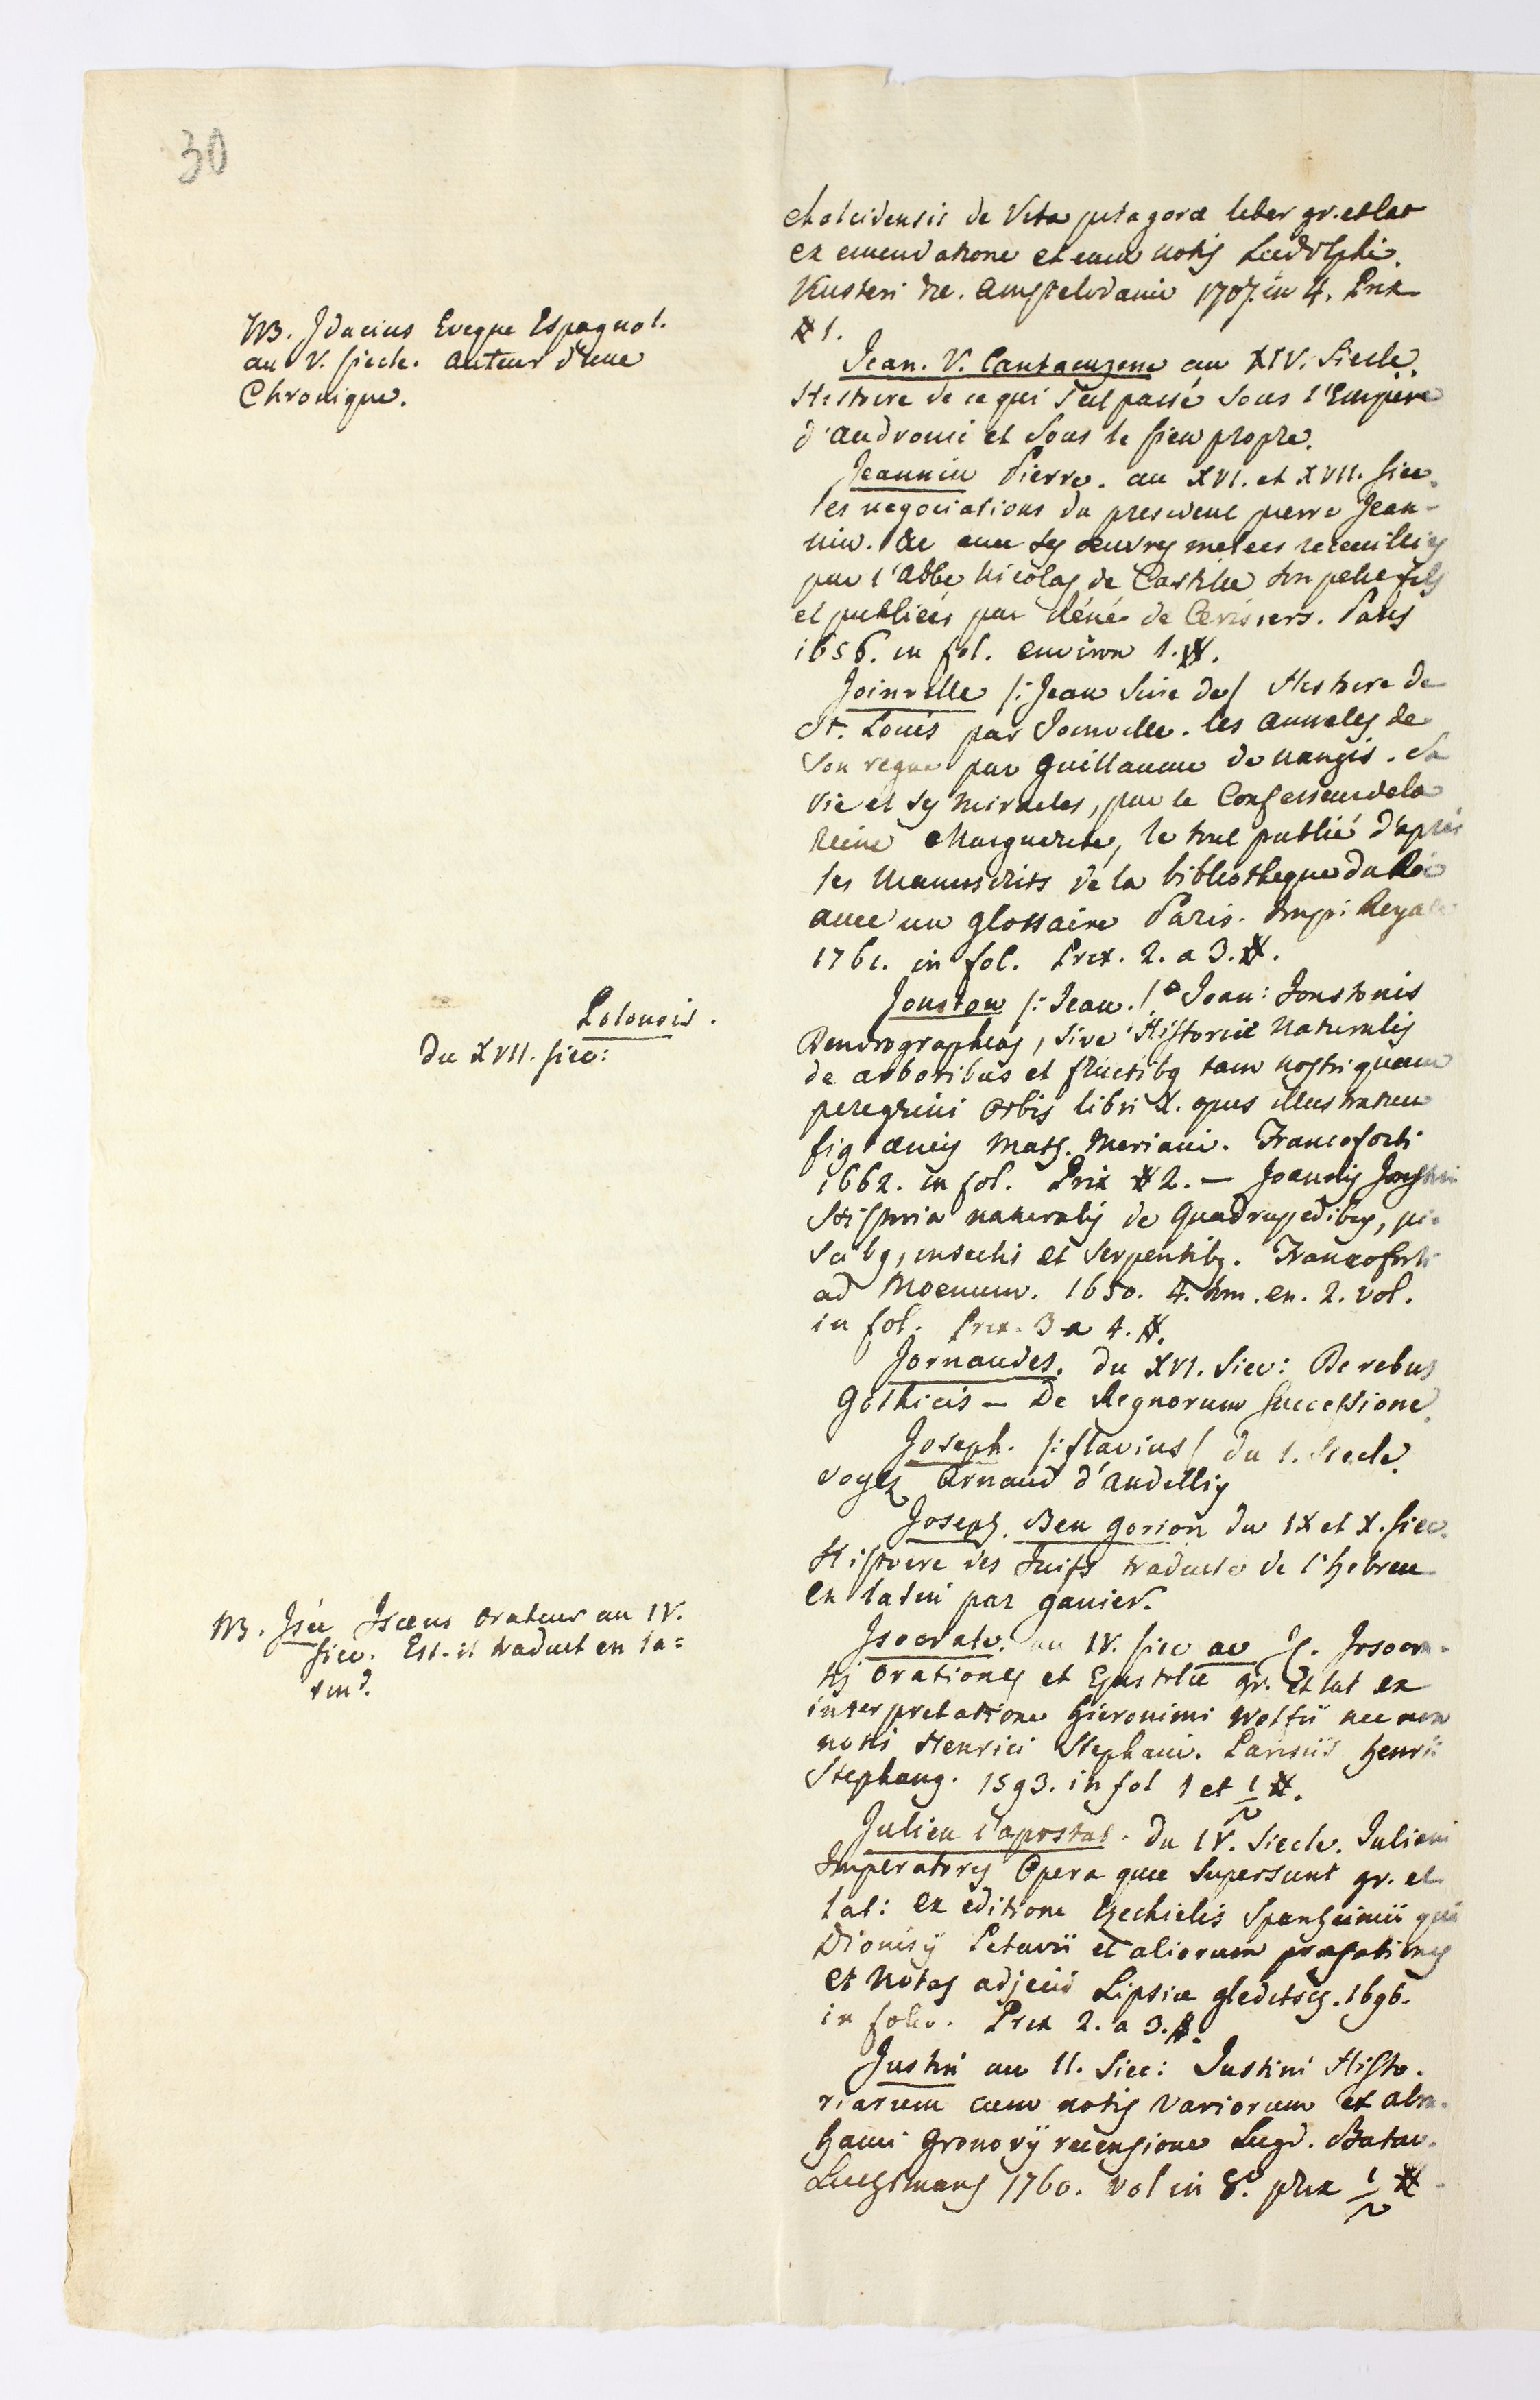 30
chalcidensis de Vita pitagoræ liber gr. et lat
ex emendatione et cum notis Ludolphi
Kusteri &c. Amstelodami 1707. in 4. Prix
# 1.
NB. Idacius Eveque Espagnol.
au V. siecle. auteur d'une
Chronique.
Jean. V. Cantacuzene au XIV. Siecle.
Histoire de ce qui s'est passé sous l'Empire
d'Andronic et sous le sien propre.
Jeannin Pierre. au XVI. et XVII. siec.
les negociations du president pierre Jean-
nin. &c avec ses œuvres melees recueillies
par l'Abbé Nicolas de Castille son petit fils
et publiées par Réné de Cerisiers. Paris
1656. in fol. environ 1. #.
Joinville /: Jean Sire de / Histoire de
St. Louis par Joinville. les Annales de
son regne par Guillaume de Nangis. Sa
vie et ses miracles, par le Confesseur de la
Reine Marguerite, le tout publié d'aprés
les Manuscrits de la bibliotheque du Roi
avec un glossaire Paris. Impr: Royale
1761. in fol. Prix. 2. a 3. #.
Polonois.
Du XVII. siec:
Jonston /: Jean. / Joan: Jonstonis
Dendrographias, sive Historiæ Naturalis
de arboribus et fructibq tam nostri quam
peregrini orbis libri X. opus illustratum
fig æneis Math. Meriani. Francoforti
1662. in fol. Prix # 2. — Joannis Jonstoni
Historia naturalis de Quadrupedibq, pi-
scibq, insectis et Serpentibq. Francoforti
ad Moenum. 1650. 4. tom. en. 2. vol.
in fol. Prix. 3 a 4. #.
Jornandes. du XVI. Siec: De rebus
Gothicis — De Regnorum Successione.
Joseph. /: flavius / du 1. Siecle.
voyez Arnaud d'Andillis
Joseph. Ben gorion du IX et X. siec.
Histoire des Juifs traduite de l'hebreu
en latin par Ganier.
NB. Isée Isæus Orateur au IV.
siec. Est-il traduit en la=
tin?
Isocrate. au IV. siec av JC. Isocra-
tis Orationes et Epistolæ gr. et lat ex
interpretatione Hieronimi Wolfii nec non
notis Henrici Stephani. Parisiis henri:
Stephang. 1593. in fol 1 et 1/2 #.
Julien l'apostat. du IV. Siecle. Juliani
Imperatoris Opera quæ supersunt gr. et
lat: ex editione Ezechielis Spanheimii qui
Dionisÿ Petavii et aliorum præfationes
et Notas adjecit Lipsiæ gleditsch. 1696.
in folio. Prix 2. a 3. #.
Justin au II. Siec: Justini Histo-
riarum cum notis variorum ex Abra-
hami Gronovÿ recensione Lugd. Batav.
Luchtmans 1760. vol in 8.° prix 1/2 #